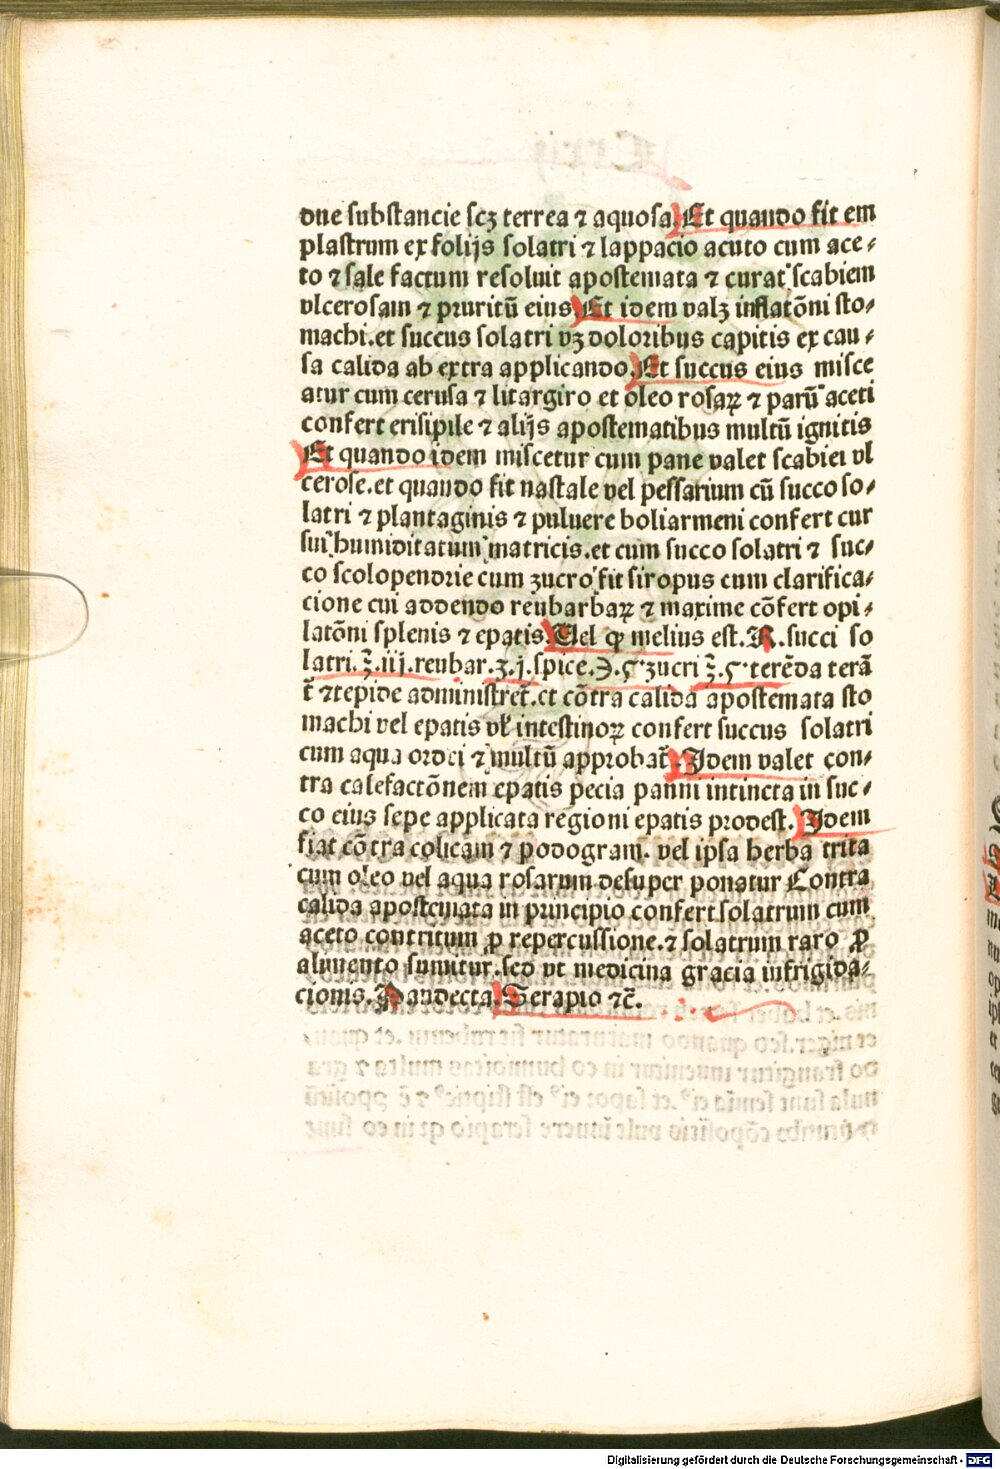 due substancie scꝫ terrea ⁊ aquosa. Et quando fit em
plastrum ex folijs solatri ⁊ lappacio acuto cum ace⸗
to ⁊ sale factum resoluit apostemata ⁊ curat scabiem
vlcerosam ⁊ pruritū eius. Et idem valꝫ inflatōni sto⸗
machi. et succus solatri vꝫ doloribus capitis ex cau⸗
sa calida ab extra applicando. Et succus eius misce
atur cum cerusa ⁊ litargiro et oleo rosaꝝ ⁊ parū aceti
confert erisipile ⁊ alijs apostematibus multū ignitis
Et quando idem miscetur cum pane valet scabiei vl
cerose. et quando fit nastale vel pessarium cū succo so⸗
latri ⁊ plantaginis ⁊ puluere boliarmeni confert cur
sui humiditatum matricis. et cum succo solatri ⁊ suc⸗
co scolopendrie cum zucro fit siropus cum clarifica⸗
cione cui addendo reubarbaꝝ ⁊ maxime cōfert opi⸗
latōni splenis ⁊ epatis. Uel ꝙ melius est. ℞. succi so
latri. ℥. iij. reubar. ʒ. j. spice. ℈. ʒucri ℥. terēda terā
t̄ ⁊ tepide administret̄. et cōtra calida apostemata sto
machi vel epatis vł intestinoꝝ confert succus solatri
cum aqua ordei ⁊ multū approbat̄. Idem valet con⸗
tra calefactōnem epatis pecia panni intincta in suc⸗
co eius sepe applicata regioni epatis prodest. Idem
fiat cōtra colicam ⁊ podogram. vel ipsa herba trita
cum oleo vel aqua rosarum desuper ponatur Contra
calida apostemata in principio confert solatrum cum
aceto contritum ꝑ repercussione. ⁊ solatrum raro ꝓ
alimento sumitur. sed vt medicina gracia infrigida⸗
cionis. Pandecta. Serapio ⁊c̄.
Digitalisierung gefördert durch die Deutsche Forschungsgemeinschaft - DFG